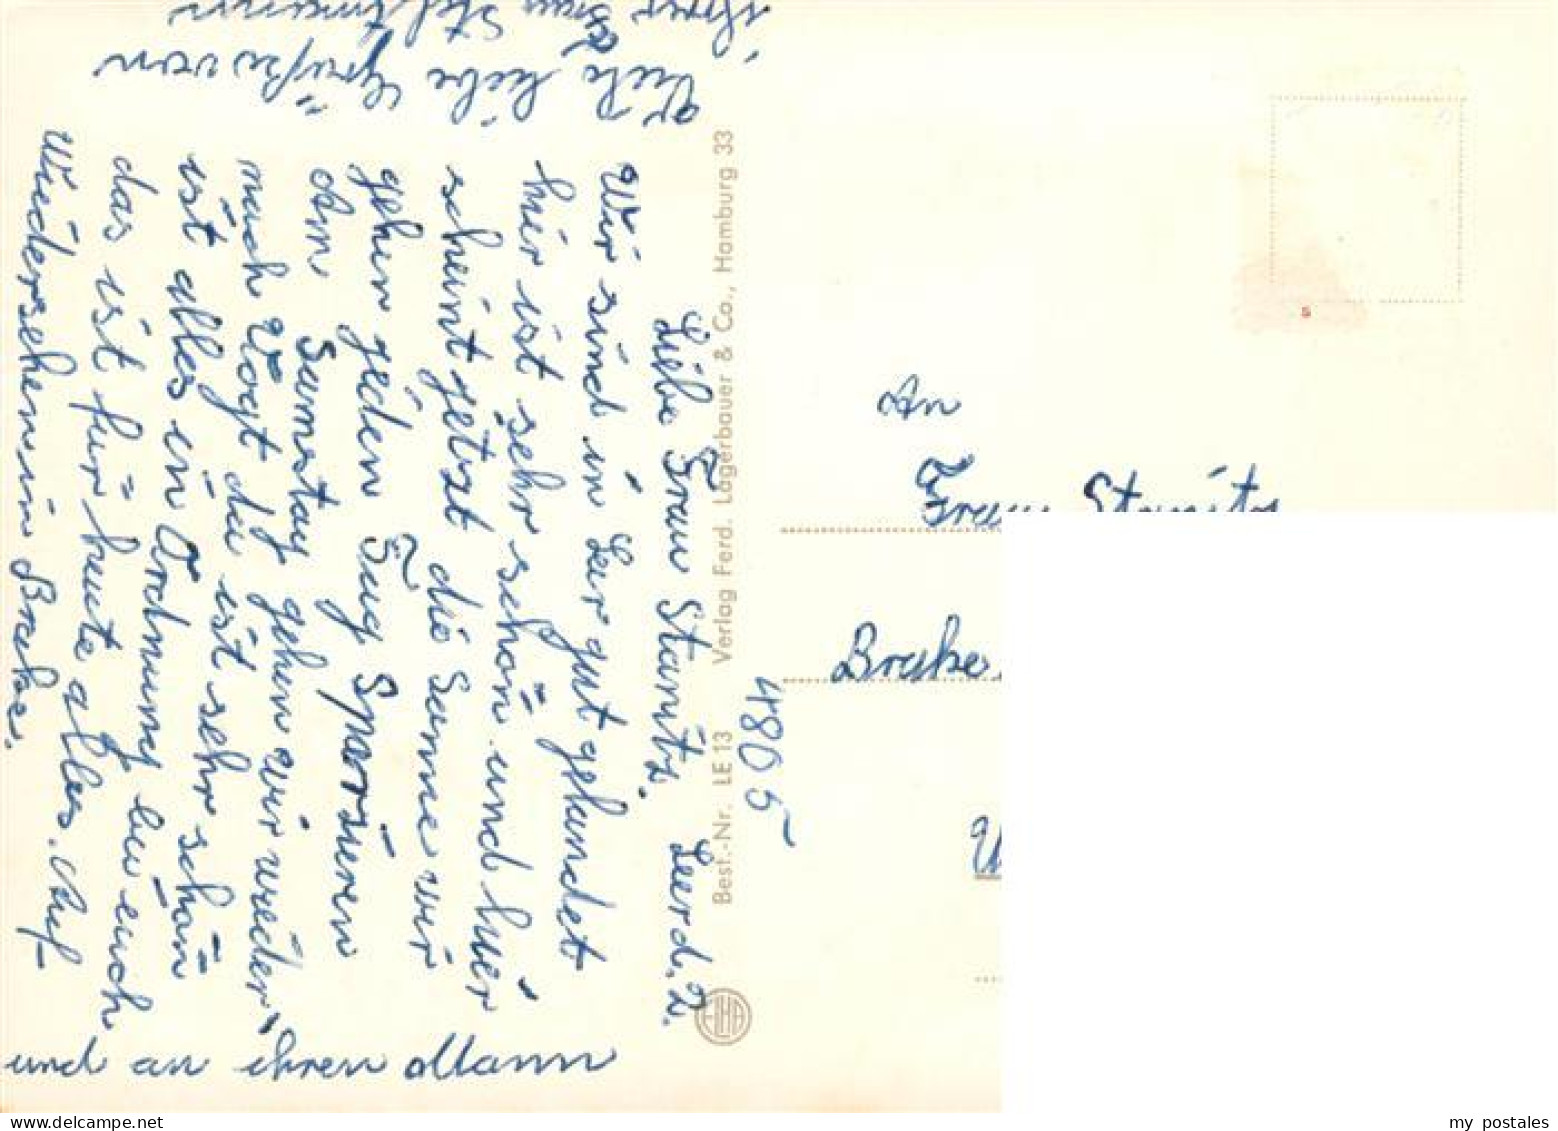 Leer d. 2.
Liebe Frau Stanitz.
Wir sind in Leer gut gelandet
hir ist sehr schön und hier
scheint jetzt die Sonne wir
gehen jeden Tag Spazieren
Am Samstag gehen wir wieder
nach Vogt da ist sehr schön
ist alles in Ordnung bei euch
das ist für heute alles. Auf
Wiedersehen in Brake.
Viele liebe Grüße von
ihrer Frau
und an ihren Mann
Best.-Nr. LE 13 Verlag Ferd. Lagerbauer & Co., Hamburg 33
An
Frau Stanitz
Brake
4805
5
my postales